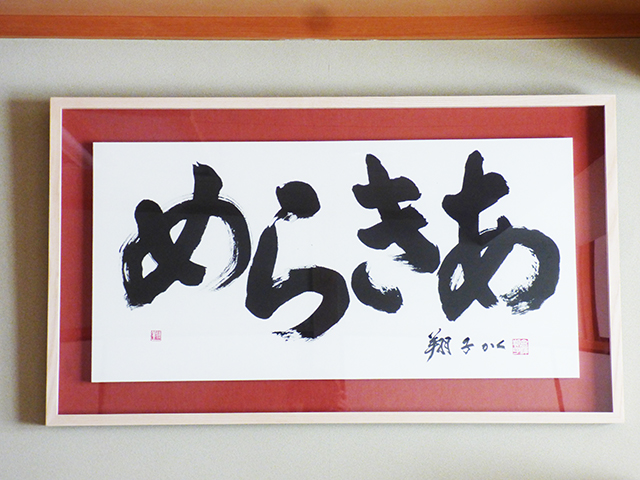 めらきあ
翔子かく